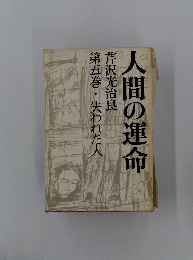 人間の運命
芹沢光治良
第五巻・失われた人